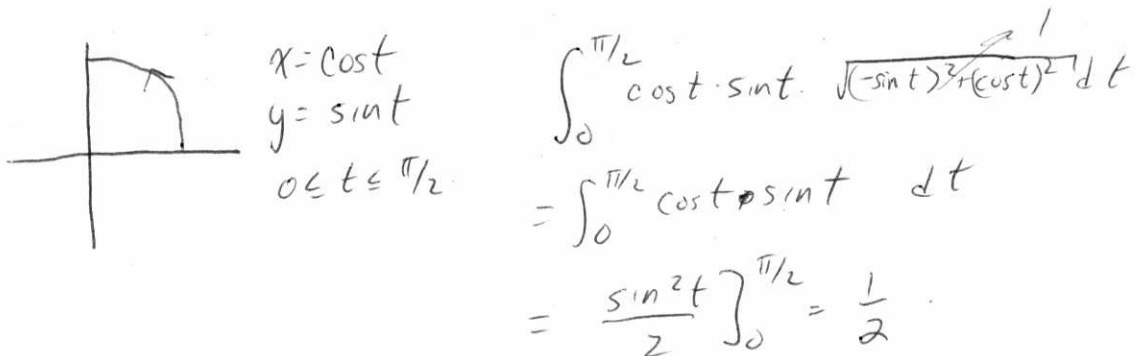 x = cos t
y = sin t
0 ≤ t ≤ π/2
∫₀^{π/2} cos t · sin t · √((-sin t)² + (cos t)²) dt 1
= ∫₀^{π/2} cos t · sin t dt
= sin² t / 2 ]₀^{π/2} = 1/2 .